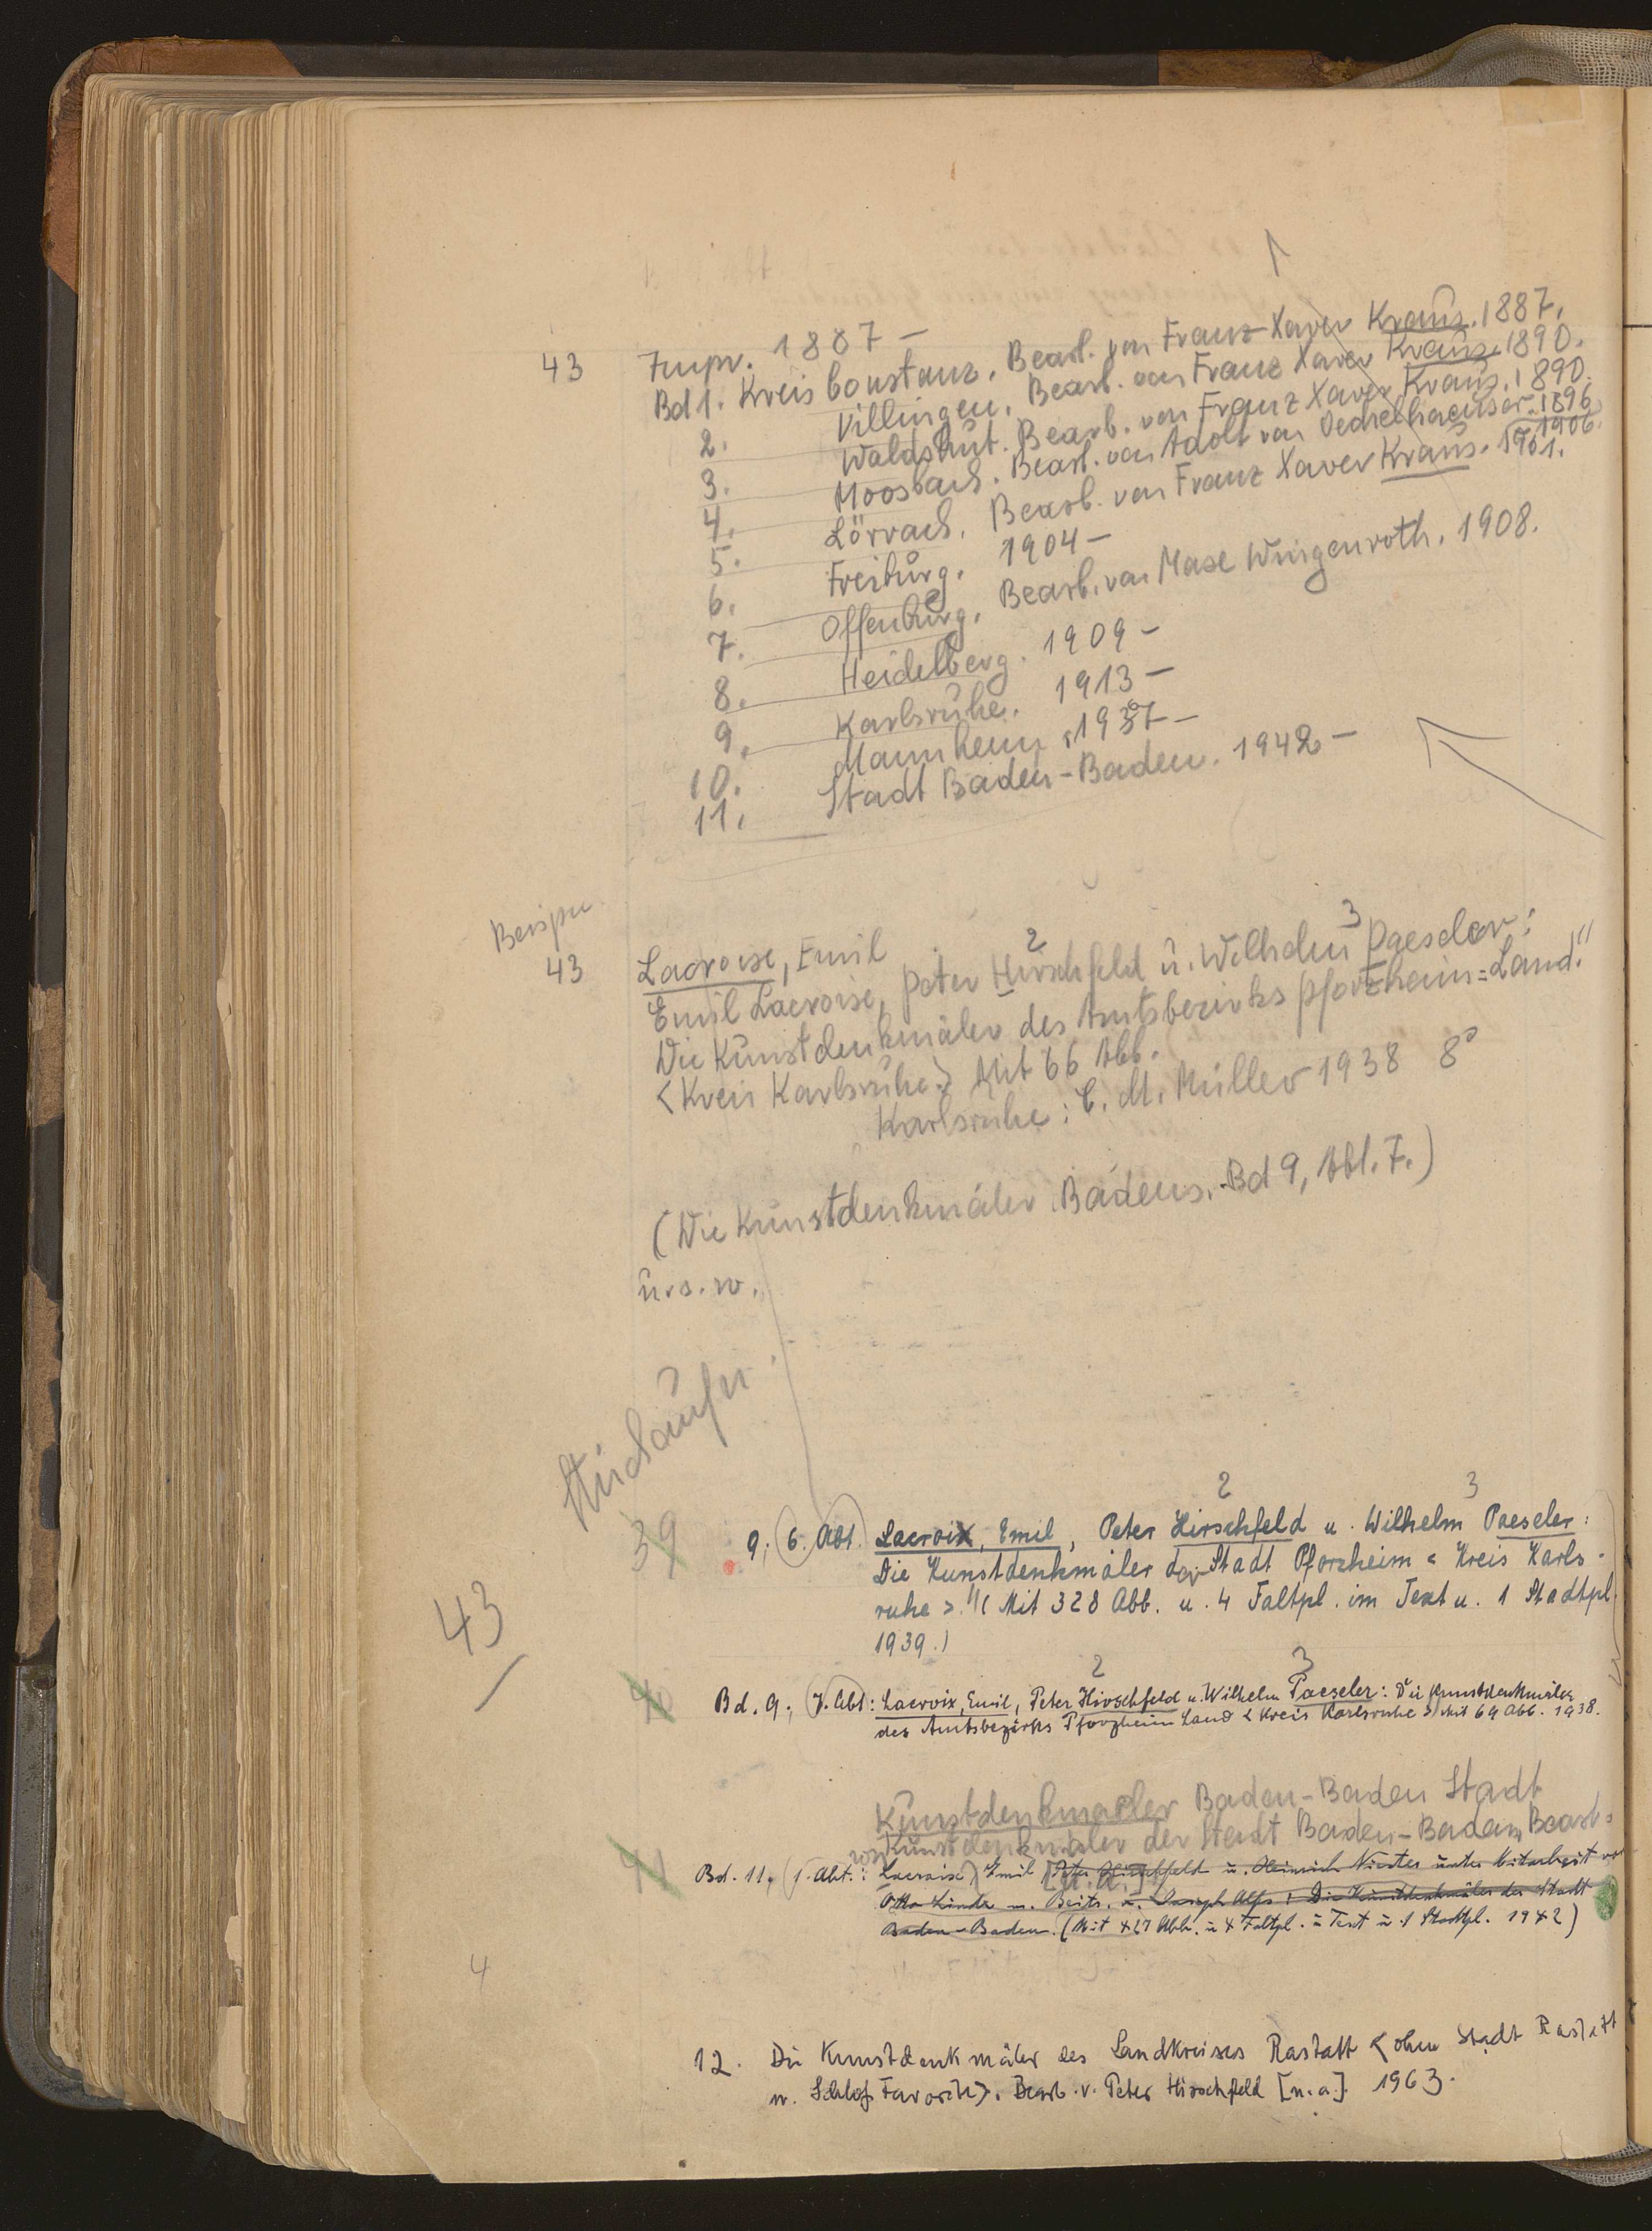 1
43 Impr. 1887 —
Bd 1. Kreis Constanz. Bearb. von Franz Xaver Kraus. 1887.
2. — Villingen. Bearb. von Franz Xaver Kraus. 1890.
3. — Waldshut. Bearb. von Franz Xaver Kraus. 1890.
4. — Moosbach. Bearb. von Adolf von Oechelhaeuser. 1896
— 1906.
5. — Lörrach. Bearb. von Franz Xaver Kraus. 1901.
6. — Freiburg. 1904 —
7. — Offenburg. Bearb. von Max Wingenroth. 1908.
8. — Heidelberg. 1909 —
9. — Karlsruhe. 1913 —
10. Mannheim 1937 —
11. — Stadt Baden-Baden. 1942 —
43 Lacroix, Emil
2 3
Emil Lacroix, Peter Hirschfeld u. Wilhelm Paeseler:
Die Kunstdenkmäler des Amtsbezirks Pforzheim=Land."
<Kreis Karlsruhe> Mit 66 Abb.
Karlsruhe: C. M. Müller 1938 8°
(Die Kunstdenkmäler Badens. Bd 9, Abt. 7.)
u.s.w.
2 3
39 9. 6. Abt. Lacroix, Emil, Peter Hirschfeld u. Wilhelm Paeseler:
Die Kunstdenkmäler der Stadt Pforzheim < Kreis Karls-
ruhe >. (Mit 328 Abb. u. 4 Faltpl. im Text u. 1 Stadtpl.
1939.)
43
2 3
40 Bd. 9., 7. Abt: Lacroix, Emil, Peter Hirschfeld u. Wilhelm Paeseler: Die Kunstdenkmäler
des Amtsbezirks Pforzheim Land < Kreis Karlsruhe > Mit 69 Abb. 1938.
Kunstdenkmaeler Baden-Baden Stadt
Kunstdenkmäler der Stadt Baden-Baden Bearb.
von
41 Bd. 11. (1. Abt.: Lacroix) Emil [u.a.] Peter Hirschfeld u. Heinrich Niester unter Mitarbeit von
Otto Linde m. Beitr. v. Joseph Alfs: Die Kunstdenkmäler der Stadt
Baden-Baden. (Mit 427 Abb. u 4 Faltpl. i. Text u. 1 Stadtpl. 1942)
4
12. Die Kunstdenkmäler des Landkreises Rastatt < ohne Stadt Rastatt
u. Schloß Favorite>. Bearb. v. Peter Hirschfeld [u.a.]. 1963.